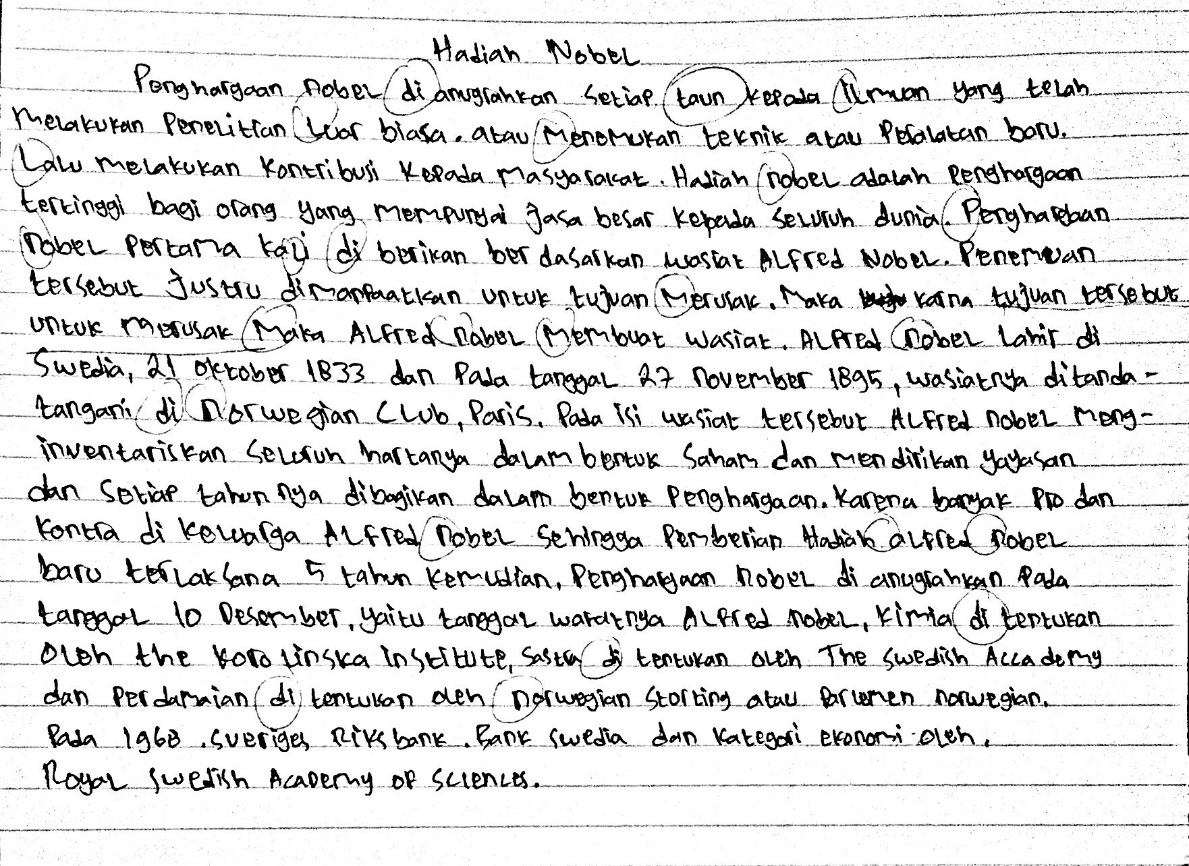 Hadiah Nobel
Penghargaan nobel di anugrahkan setiap taun kepada ilmuan yang telah
melakukan penelitian luar biasa. atau menemukan teknik atau peralatan baru.
Lalu melakukan kontribusi kepada masyarakat. Hadiah nobel adalah penghargaan
tertinggi bagi orang yang mempunyai jasa besar kepada seluruh dunia. Penghargaan
nobel pertama kali di berikan ber dasarkan wasiat Alfred Nobel. Penemuan
tersebut justru dimanfaatkan untuk tujuan merusak. Maka karna tujuan tersebut
untuk merusak Maka Alfred nobel membuat wasiat. Alfred nobel lahir di
Swedia, 21 oktober 1833 dan pada tanggal 27 november 1895, wasiatnya ditanda-
tangani di Norwegian Club, Paris. Pada isi wasiat tersebut Alfred nobel meng-
inventariskan seluruh hartanya dalam bentuk saham dan mendirikan yayasan
dan setiap tahun nya dibagikan dalam bentuk penghargaan. Karena banyak pro dan
kontra di keluarga Alfred nobel sehingga pemberian Hadiah alfred nobel
baru terlaksana 5 tahun kemudian, Penghargaan nobel di anugrahkan pada
tanggal 10 Desember, yaitu tanggal wafatnya Alfred nobel, kimia di tentukan
oleh the korolinska institute, sastra di tentukan oleh The Swedish Accademy
dan perdamaian di tentukan oleh norwegian storting atau parlemen norwegian.
Pada 1968. sveriges Riksbank. Bank swedia dan kategori ekonomi oleh.
Royal Swedish Academy of sciences.